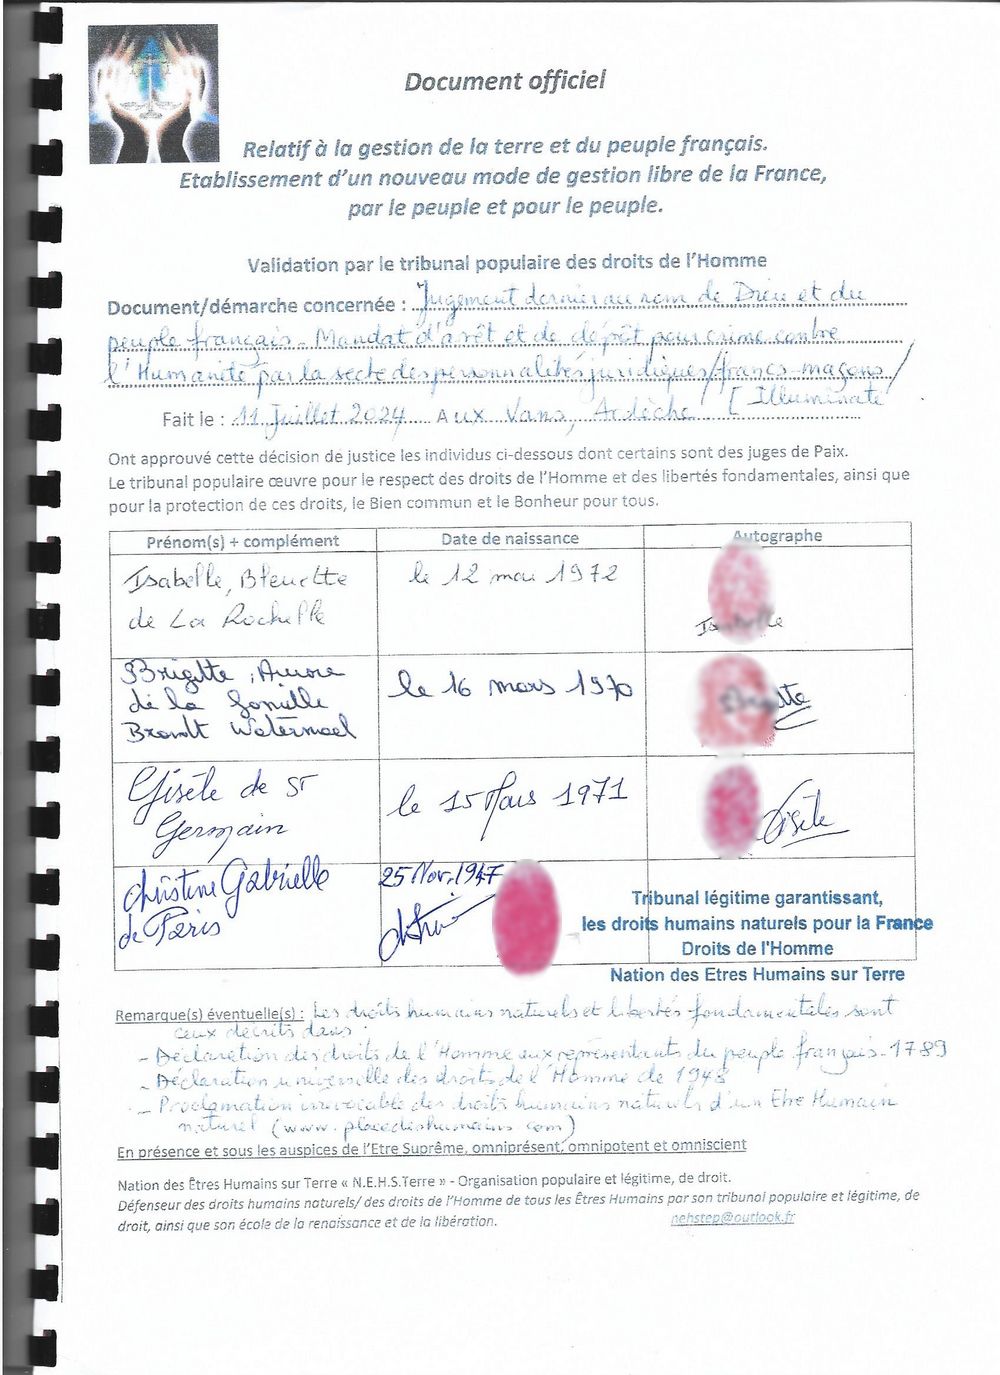 Document officiel
Relatif à la gestion de la terre et du peuple français.
Etablissement d'un nouveau mode de gestion libre de la France,
par le peuple et pour le peuple.
Validation par le tribunal populaire des droits de l'Homme
Document/démarche concernée : Jugement dernier au nom de Dieu et du
peuple français - Mandat d'arrêt et de dépôt pour crime contre
l'Humanité par la secte des personnalités juridiques/francs-maçons/
Fait le : 11 Juillet 2024 Aux Vans, Ardèche [Illuminate
Ont approuvé cette décision de justice les individus ci-dessous dont certains sont des juges de Paix.
Le tribunal populaire œuvre pour le respect des droits de l'Homme et des libertés fondamentales, ainsi que
pour la protection de ces droits, le Bien commun et le Bonheur pour tous.
Prénom(s) + complément Date de naissance Autographe
Isabelle, Bleuette le 12 mai 1972
de La Rochelle Isabelle
Brigitte, Aurore le 16 mars 1970 Brigitte
de la famille
Brandt Watermael
Gisèle de ST le 15 Mars 1971 Gisèle
Germain
Christine Gabrielle 25 Nov. 1947
de Paris
Tribunal légitime garantissant,
les droits humains naturels pour la France
Droits de l'Homme
Nation des Etres Humains sur Terre
Remarque(s) éventuelle(s) : Les droits humains naturels et libertés fondamentales sont
ceux décrits dans :
- Déclaration des droits de l'Homme aux représentants du peuple français - 1789
- Déclaration universelle des droits de l'Homme de 1948
- Proclamation irrévocable des droits humains naturels d'un Etre Humain
naturel (www.placedeshumains.com)
En présence et sous les auspices de l'Etre Suprême, omniprésent, omnipotent et omniscient
Nation des Êtres Humains sur Terre « N.E.H.S.Terre » - Organisation populaire et légitime, de droit.
Défenseur des droits humains naturels/ des droits de l'Homme de tous les Êtres Humains par son tribunal populaire et légitime, de
droit, ainsi que son école de la renaissance et de la libération. nehstep@outlook.fr